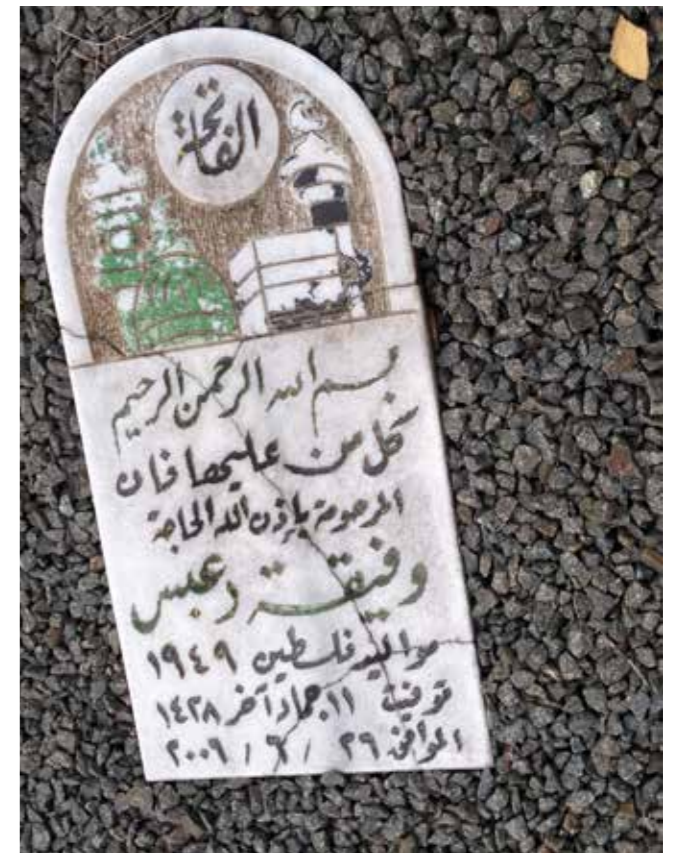 الفاتحة
بسم الله الرحمن الرحيم
كل من عليها فان
المرحومة بإذن الله الحاجة
وفيقة دعبس
مواليد فلسطين ١٩٤٩
توفيت ١١ جماد آخر ١٤٢٨
الموافق